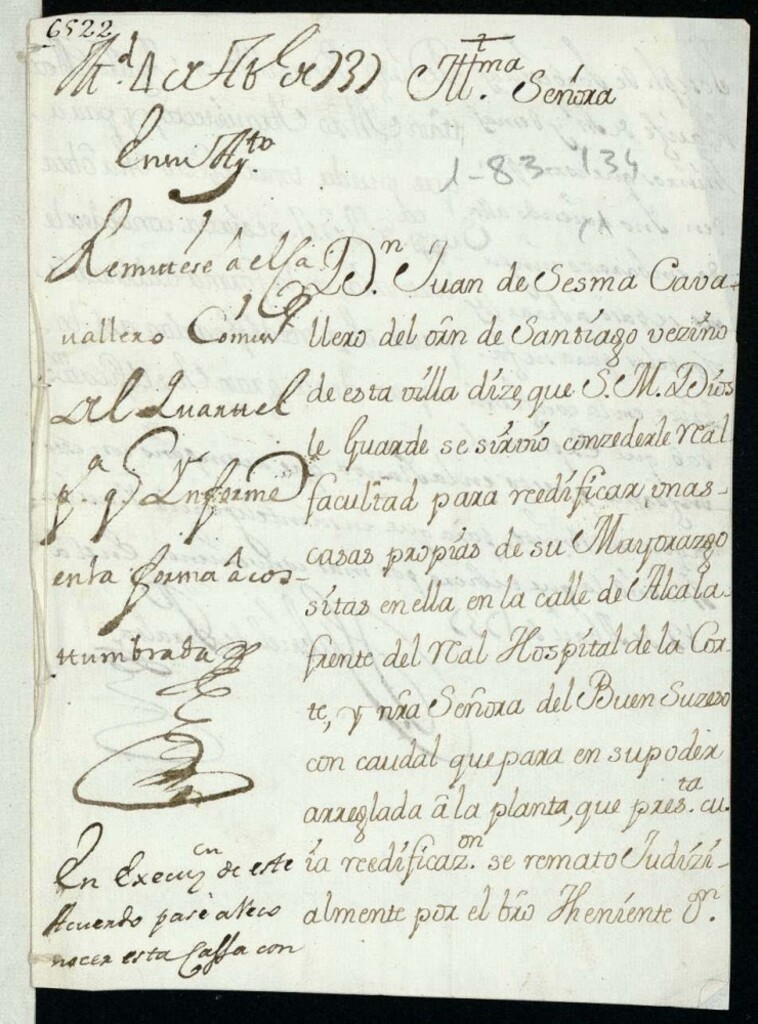 6522
M.d 4 de Ab.l de 1731
Enm Ay.to
Remittese â el S.r
uallero Comis.o
del Quartel
p.a q̃ Ynforme
en la forma âcos-
ttumbrada
En Execuz.on de este
Acuerdo pasè a Reco
nocer esta Cassa con
Ill.ma Señora
1-83-134
D.n Juan de Sesma Cava-
llero del orn de Santiago vezino
de esta villa dize, que S. M. Dios
le Guarde se sirvio conzederle Real
facultad para reedificar vnas-
casas propias de su Mayorazgo
sitas en ella en la calle de Alcala-
frente del Real Hospital de la Cor-
te, y nr̃a Señora del Buen Suzeso
con caudal que para en su poder
arreglada â la planta, que pres.ta cu-
ia reedificaz.on se remato Judizi-
almente por el br̃o Theniente D.n